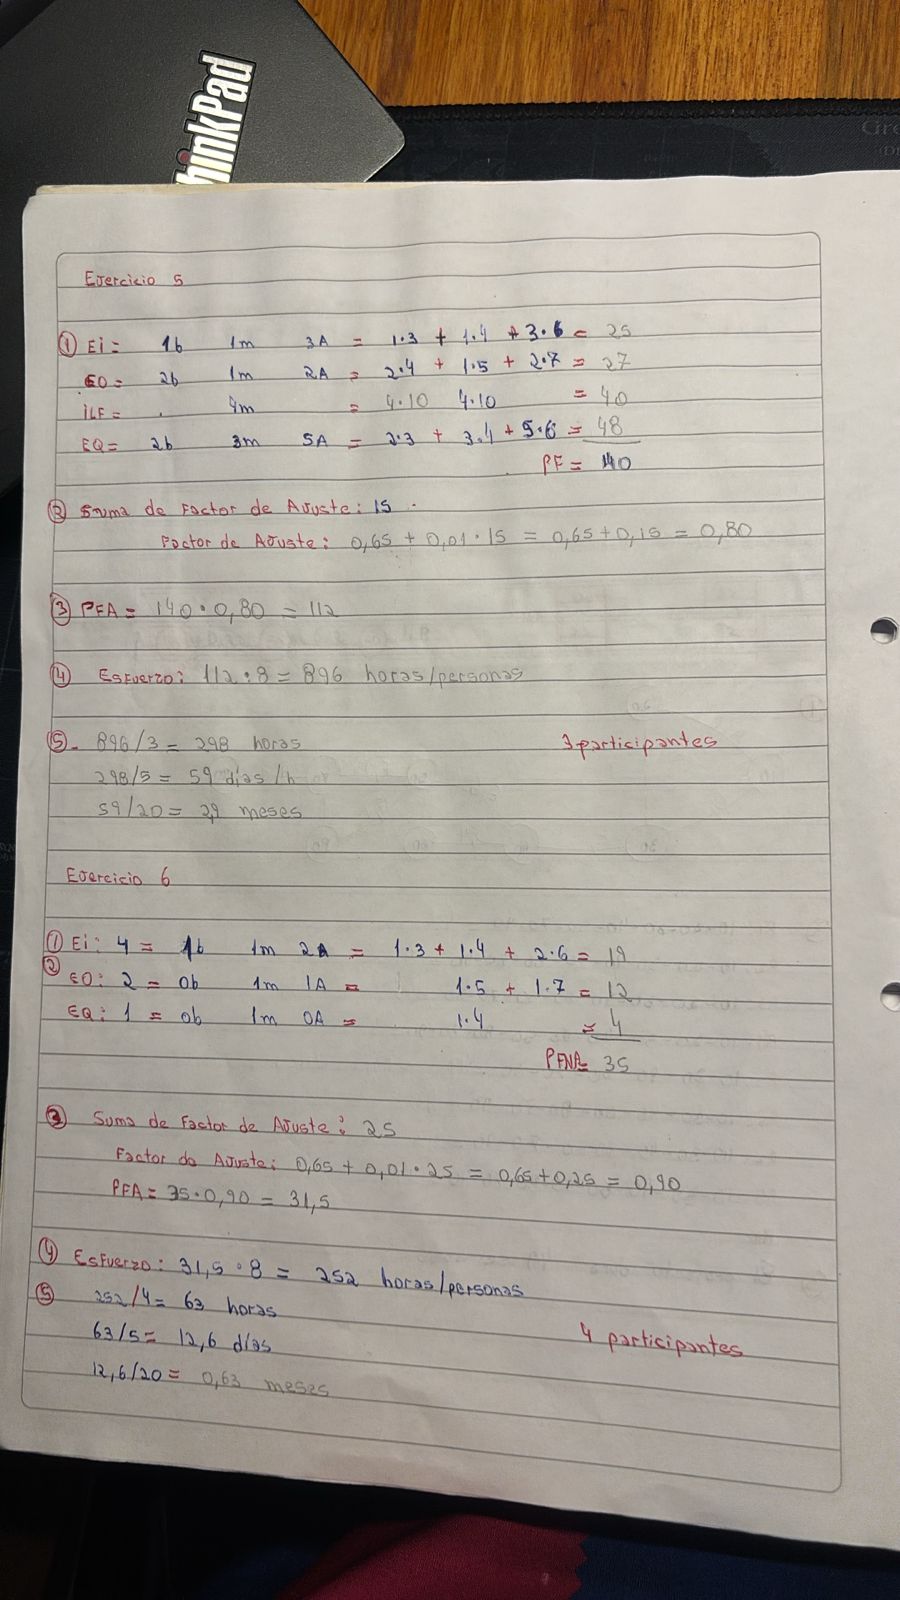 ThinkPad
Ejercicio 5
① Ei = 1b 1m 3A = 1·3 + 1·4 + 3·6 = 25
EO = 2b 1m 2A = 2·4 + 1·5 + 2·7 = 27
iLF = . 4m = 4·10 4·10 = 40
EQ = 2b 3m 5A = 2·3 + 3·4 + 5·6 = 48
PF = 140
② Suma de Factor de Ajuste: 15 .
Factor de Ajuste: 0,65 + 0,01 · 15 = 0,65 + 0,15 = 0,80
③ PFA = 140 · 0,80 = 112
④ Esfuerzo: 112 · 8 = 896 horas/personas
⑤- 896/3 = 298 horas 3 participantes
298/5 = 59 días/h
59/20 = 2,9 meses
Ejercicio 6
① Ei: 4 = 1b 1m 2A = 1·3 + 1·4 + 2·6 = 19
② EO: 2 = 0b 1m 1A = 1·5 + 1·7 = 12
EQ: 1 = 0b 1m 0A = 1·4 = 4
PFNA = 35
③ Suma de Factor de Ajuste: 25
Factor de Ajuste: 0,65 + 0,01 · 25 = 0,65 + 0,25 = 0,90
PFA = 35 · 0,90 = 31,5
④ Esfuerzo: 31,5 · 8 = 252 horas/personas
⑤ 252/4 = 63 horas
63/5 = 12,6 días 4 participantes
12,6/20 = 0,63 meses